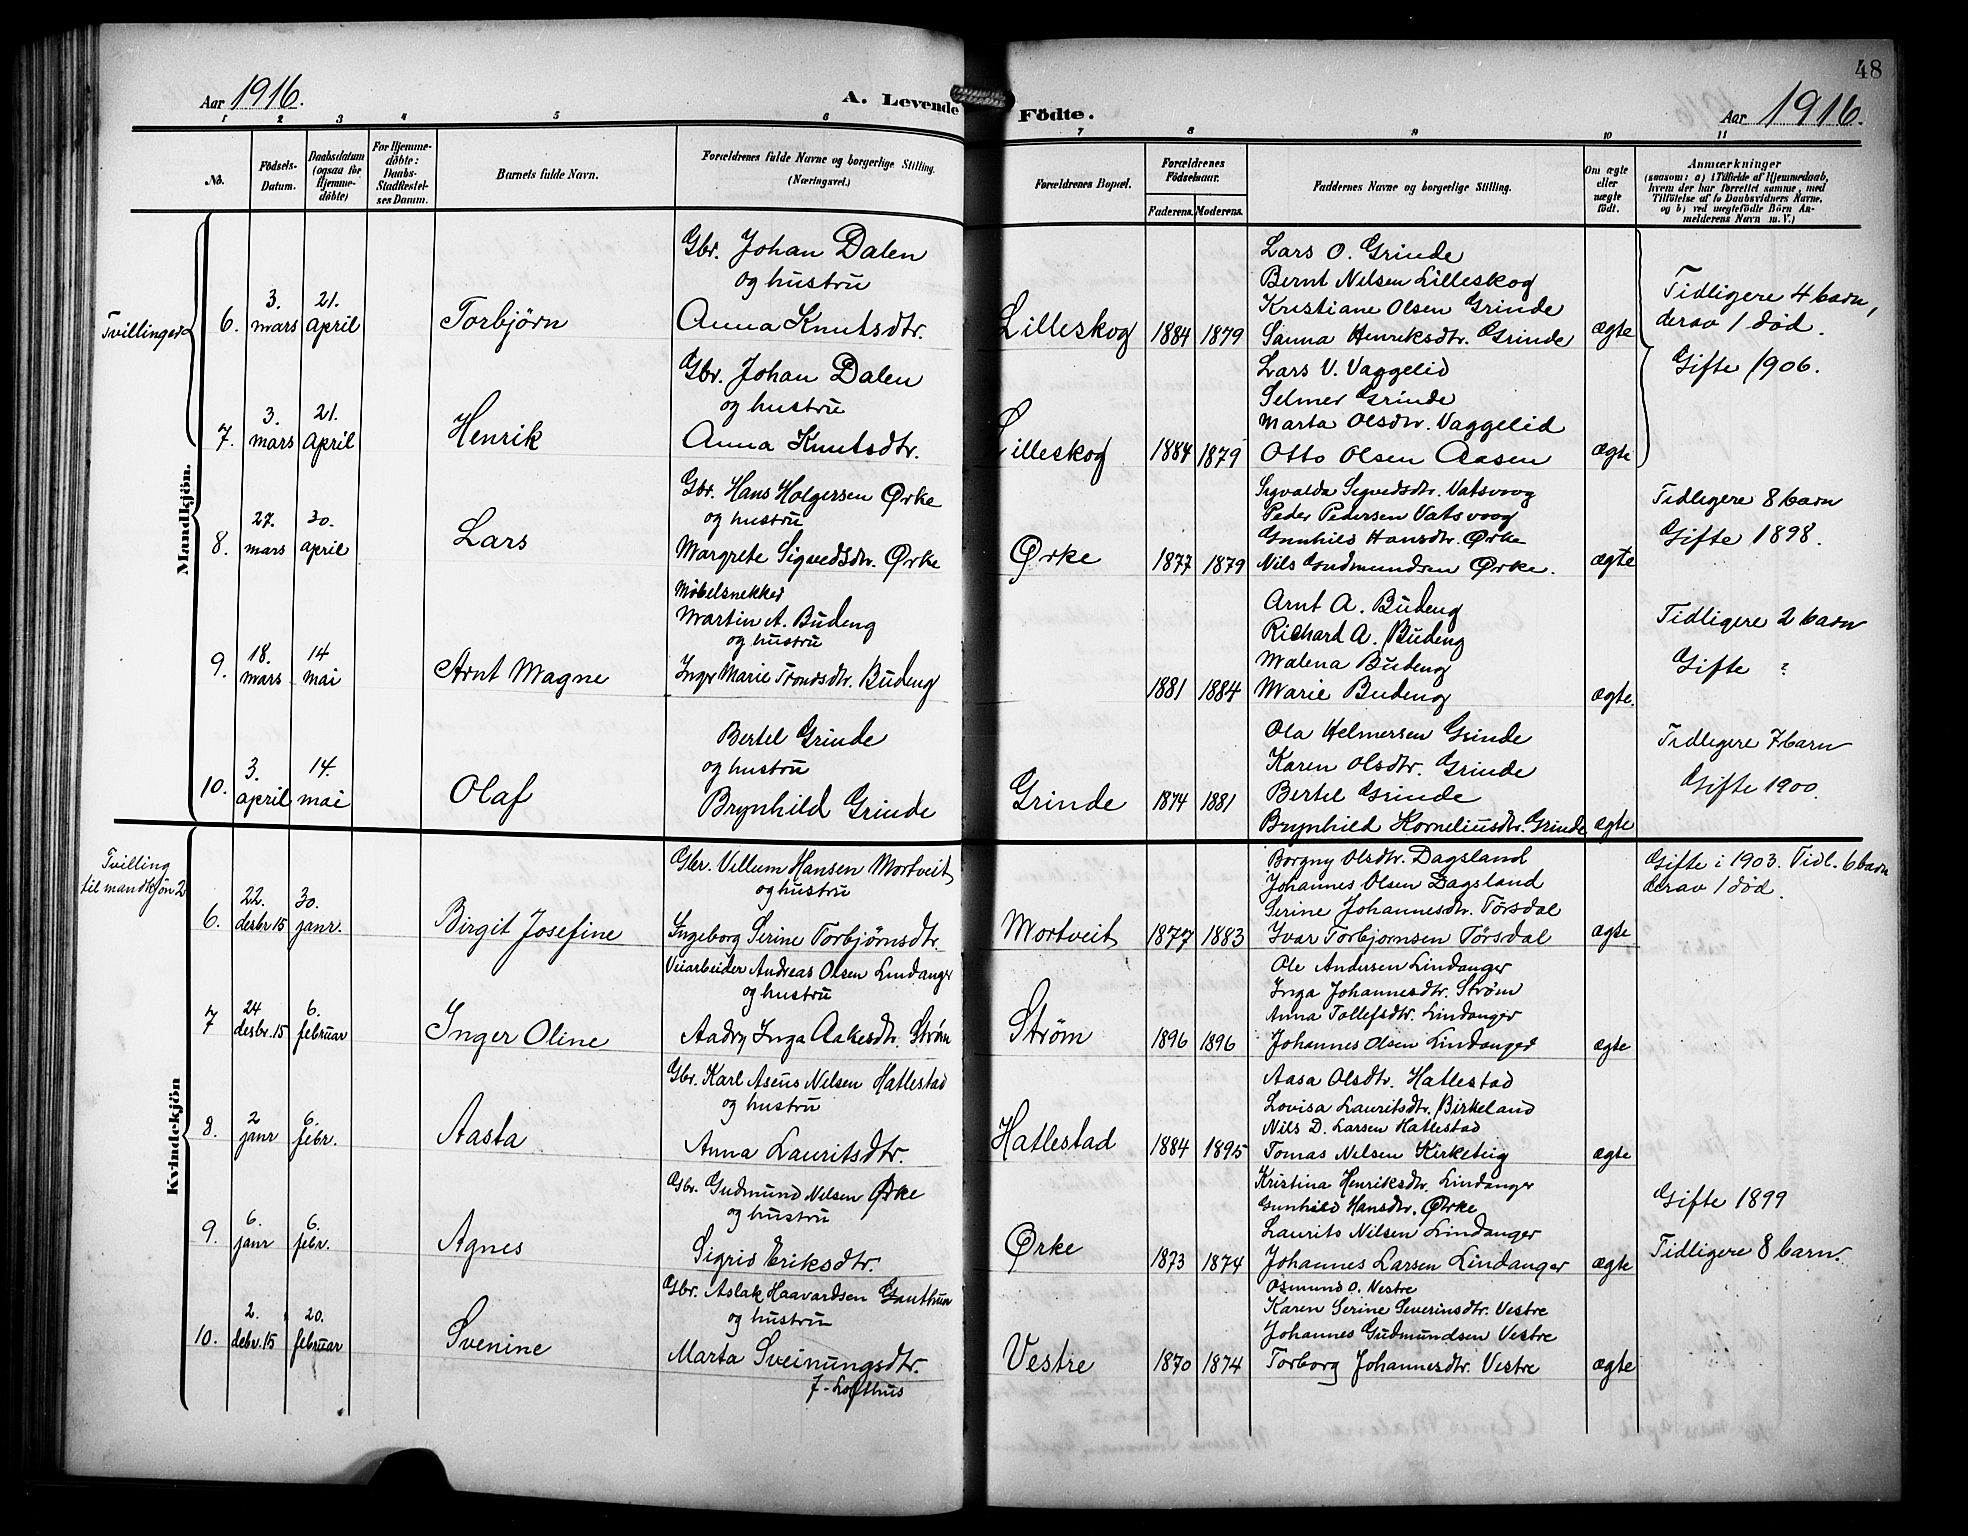 48
Aar 1916.
A. Levende Födte.
Aar 1916.
1 2 3 4 5 6 7 8 9 10 11
No.
Födsels-Datum.
Daabsdatum (ogsaa for Hjemmedöbte)
For Hjemmedöbte: Daabs-Stadfæstelses Datum.
Barnets fulde Navn.
Forældrenes fulde Navne og borgerlige Stilling. (Næringsvei.)
Forældrenes Bopæl.
Forældrenes Födselsaar.
Faderens. Moderens.
Faddernes Navne og borgerlige Stilling.
Om ægte eller uægte födt.
Anmærkninger
(saasom: a) i Tilfælde af Hjemmedaab, hvem der har forrettet samme, med Tilföielse af to Daabsvidners Navne, og b) ved uægtefödte Börn Anmelderens Navn m. V.)
Mandkjön.
Tvillinger
6.
3. mars
21. april
Torbjörn
Gbr. Johan Dalen
og hustru
Anna Knutsdtr.
Lilleskog
1884 1879
Lars O. Grinde
Bernt Nilsen Lilleskog
Kristiane Olsen Grinde
Sanna Henriksdtr. Grinde
ægte
Tidligere 4 barn,
derav 1 död.
Gifte 1906.
7.
3. mars
21. april
Henrik
Gbr. Johan Dalen
og hustru
Anna Knutsdtr.
Lilleskog
1884 1879
Lars V. Vaggelid
Selmer Grinde
Marta Olsdtr. Vaggelid
Otto Olsen Aasen
ægte
8.
27. mars
30. april
Lars
Gbr. Hans Holgersen Ørke
og hustru
Margrete Sigvedsdtr. Ørke
Ørke
1877 1879
Sigvalda Sigvedsdtr. Vatsvoog
Peder Pedersen Vatsvoog
Gunhild Hansdtr. Ørke
Nils Gudmundsen Ørke.
ægte
Tidligere 8 barn
Gifte 1898.
9.
18. mars
14 mai
Arnt Magne
Møbelsnekker
Martin A. Budeng
og hustru
Inger Marie Trondsdtr. Budeng
1881 1884
Arnt A. Budeng
Richard A. Budeng
Malena Budeng
Marie Budeng
ægte.
Tidligere 2 barn
Gifte ?
10.
3. april
14. mai
Olaf
Bertel Grinde
og hustru
Brynhild Grinde
Grinde
1874 1881
Ola Helmersen Grinde
Karen Olsdtr. Grinde
Bertel Grinde
Brynhild Korneliusdtr. Grinde
ægte
Tidligere 7 barn
Gifte 1900.
Kvindekjön
Tvilling
til mandkjön 2
6.
22. desbr. 15
30. janr.
Birgit Josefine
Gbr. Villum Hansen Mortveit
og hustru
Ingeborg Serine Torbjörnsdtr.
Mortveit
1877 1883
Borgny Olsdtr. Dagsland
Johannes Olsen Dagsland
Serine Johannesdtr. Tørsdal
Ivar Torbjørnsen Tørsdal
ægte
Gifte i 1903. Tidl. 6 barn
derav 1 död.
7
24 desbr. 15
6. februar
Inger Oline
Veiarbeider Andreas Olsen Lindanger
og hustru
Aadry Inga Aakesdtr. Strøm
Strøm
1896 1896
Ole Andersen Lindanger
Inga Johannesdtr. Strøm
Anna Tollefsdtr. Lindanger
Johannes Olsen Lindanger
ægte
8.
2 janr
6. febr.
Aasta
Gbr. Karl Aseus Nilsen Hatlestad
og hustru
Anna Lauritsdtr.
Hatlestad
1884 1895
Aasa Olsdtr. Hatlestad
Lovisa Lauritsdtr. Birkeland
Nils D. Larsen Hatlestad
Tomas Nilsen Kirketeig
ægte
9.
6. janr
6. febr.
Agnes
Gbr. Gudmund Nilsen Ørke
og hustru
Sigrid Eriksdtr.
Ørke
1873 1874
Kristina Henriksdtr. Lindanger
Gunhild Hansdtr. Ørke
Laurits Nilsen Lindanger
Johannes Larsen Lindanger
ægte
Gifte 1899
Tidligere 8 barn.
10.
2. debr. 15
20. februar
Svenine
Gbr. Aslak Haavardsen Gauthun
og hustru
Marta Sveinungsdtr.
f. Lofthus
Vestre
1870 1874
Osmund O. Vestre
Karen Serine Severinsdtr. Vestre
Johannes Gudmundsen Vestre
Torborg Johannesdtr. Vestre
ægte